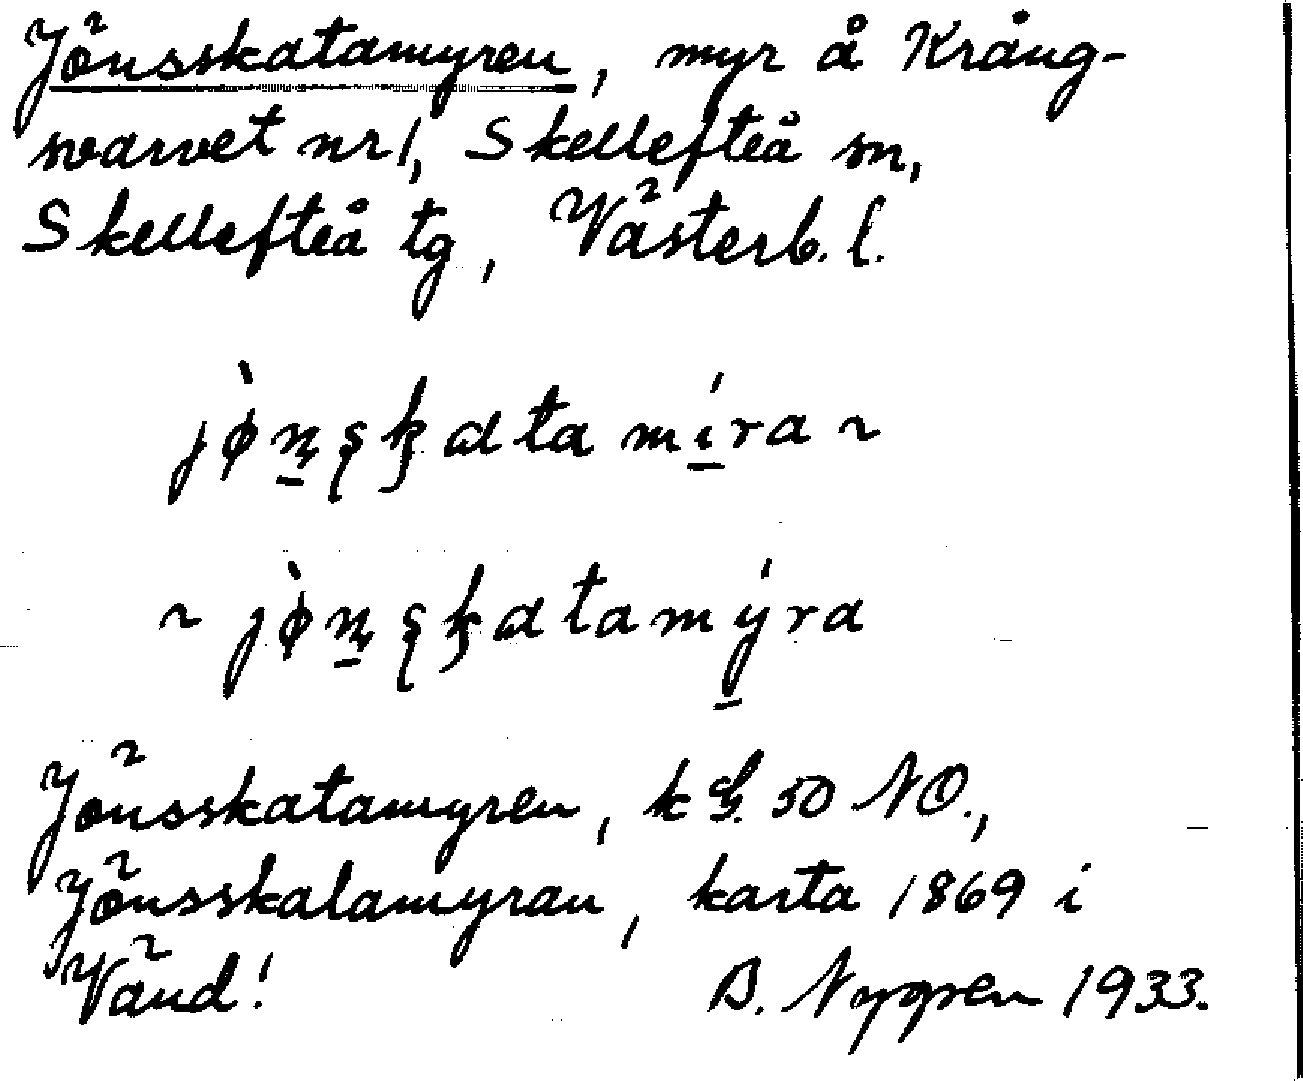 Jönsskatamyren, myr å Krång-
svarvet nr 1, Skellefteå sn,
Skellefteå tg, Västerb. l.
jònskatamíra ~
~ jònskatamýra
Jönsskatamyren, k 50 NO.,
Jönsskalamyran, karta 1869 i
Vänd! B. Nygren 1933.